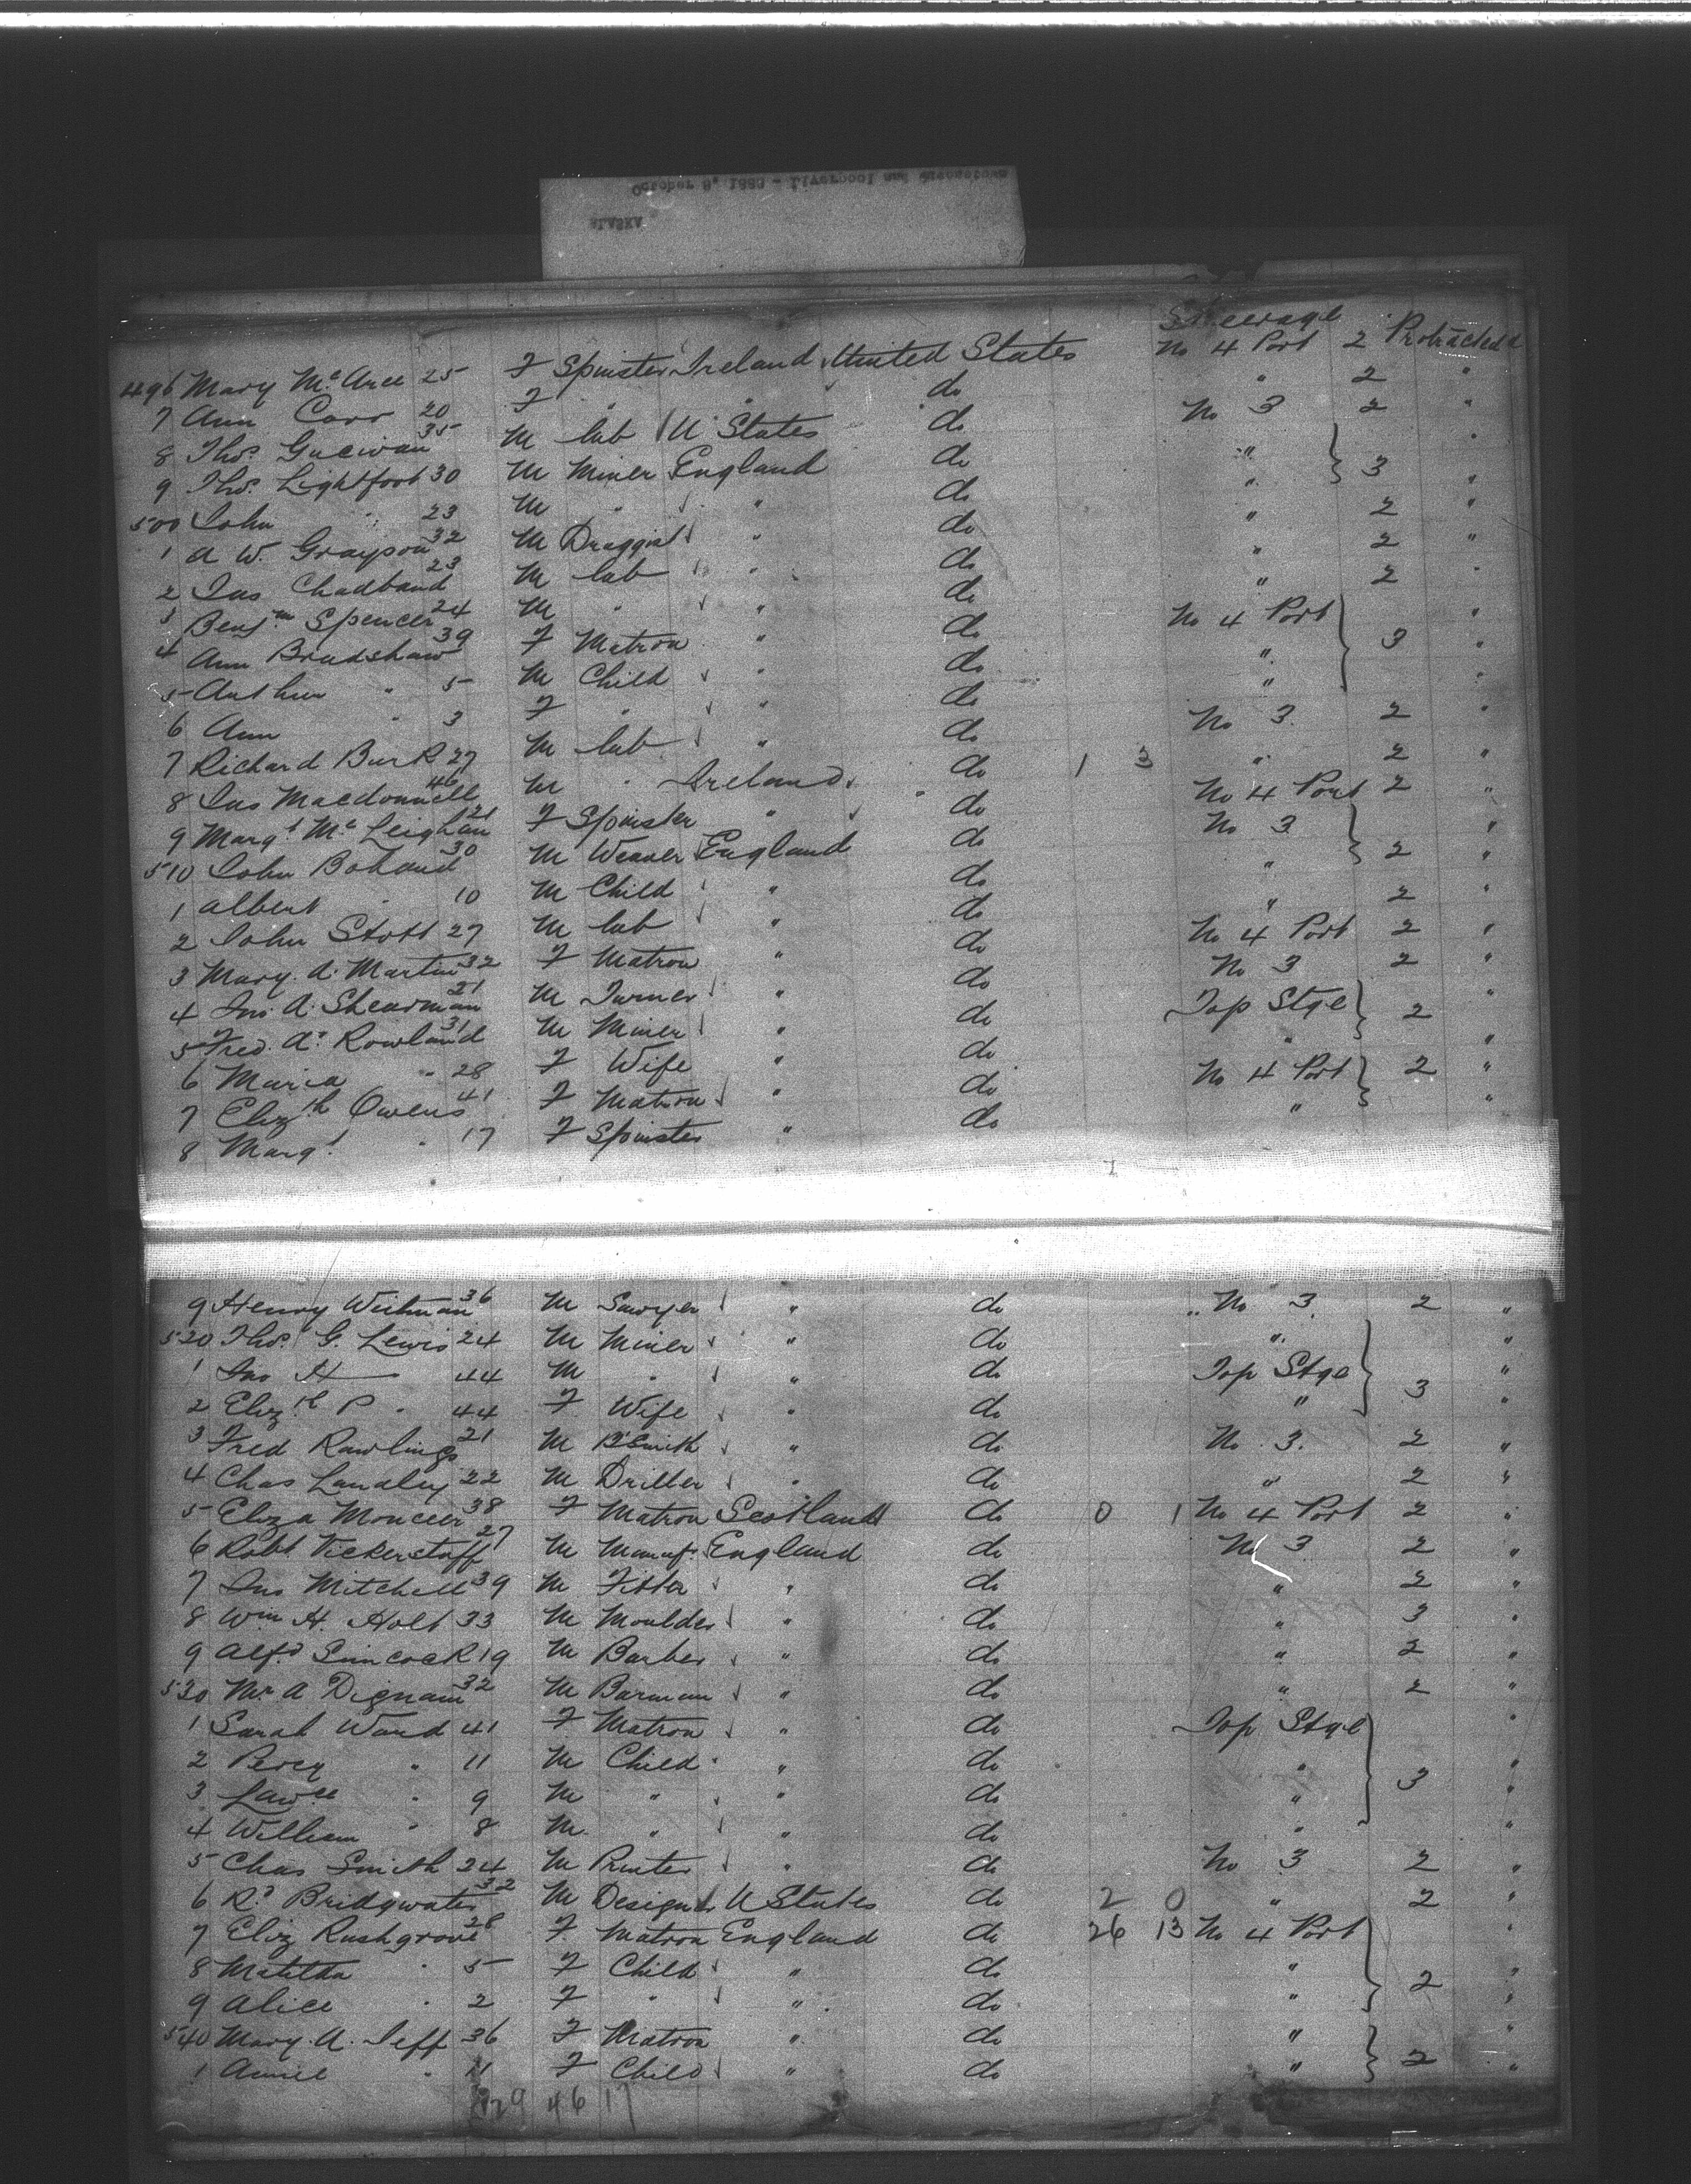 October 8, 1888 - Liverpool and Queenstown
ALASKA
Steerage
496 Mary Mc 25 F Spinster Ireland United States No 4 Port 2 Protracted
7 Ann Carr 20 F " " do " 2 "
8 Thos. 35 M lab U States do No 3 2 "
9 Thos. Lightfoot 30 M Miner England do " } 3 "
500 John " 23 M " " do " "
1 A W. Grayson 32 M Druggist " do " 2 "
2 Jas Chadband 23 M lab " do " 2 "
3 Benjm Spencer 24 M " " do " 2 "
4 Ann Bradshaw 39 F Matron " do No 4 Port } "
5 Arthur " 5 M Child " do " 3 "
6 Ann " 3 F " " do " "
7 Richard Burk 27 M lab " do No 3. 2 "
8 Jas Macdonnell 46 M " Ireland do 1 3 " 2 "
9 Margt Mc Leighan 21 F Spinster " do No 4 Port 2 "
510 John Boland 30 M Weaver England do No 3 } "
1 Albert " 10 M Child " do " 2 "
2 John Stott 27 M lab " do " 2 "
3 Mary. A. Martin 32 F Matron " do No 4 Port 2 "
4 Jno. A. Shearman 21 M Turner " do No 3 2 "
5 Fred. As Rowland 31 M Miner " do Top Stge } 2 "
6 Maria " 28 F Wife " do " "
7 Elizth Owens 41 F Matron " do No 4 Port } 2 "
8 Margt " 17 F Spinster " do " "
9 Henry Weitman 36 M Sawyer " do " No 3 2 "
520 Thos. G. Lewis 24 M Miner " do " "
1 Jno H " 44 M " " do Top Stge } "
2 Elizth P " 44 F Wife " do " 3 "
3 Fred Rawlings 21 M B'Smith " do No. 3. 2 "
4 Chas Landley 22 M Driller " do " 2 "
5 Eliza Monceer 38 F Matron Scotland do 0 1 No 4 Port 2 "
6 Robt Vickerstaff 27 M Manuf. England do No 3 2 "
7 Jno Mitchell 39 M Fitter " do " 2 "
8 Wm H. Holt 33 M Moulder " do " 3 "
9 Alfd Simcock 19 M Barber " do " 2 "
530 Mr A Dignam 32 M Barman " do " 2 "
1 Sarah Ward 41 F Matron " do Top Stge } "
2 Percy " 11 M Child " do " "
3 Lawce " 9 M " " do " 3 "
4 William " 8 M " " do " "
5 Chas Smith 24 M Printer " do No 3 2 "
6 Rd Bridgwater 32 M Design U States do 2 0 " 2 "
7 Eliz Rushgrove 28 F Matron England do 26 13 No 4 Port } "
8 Matilda " 5 F Child " do " 2 "
9 Alice " 2 F " " do " "
540 Mary. A. Jeff 36 F Matron " do " } "
1 Annie " 11 F Child " do " 2 "
29 46 17